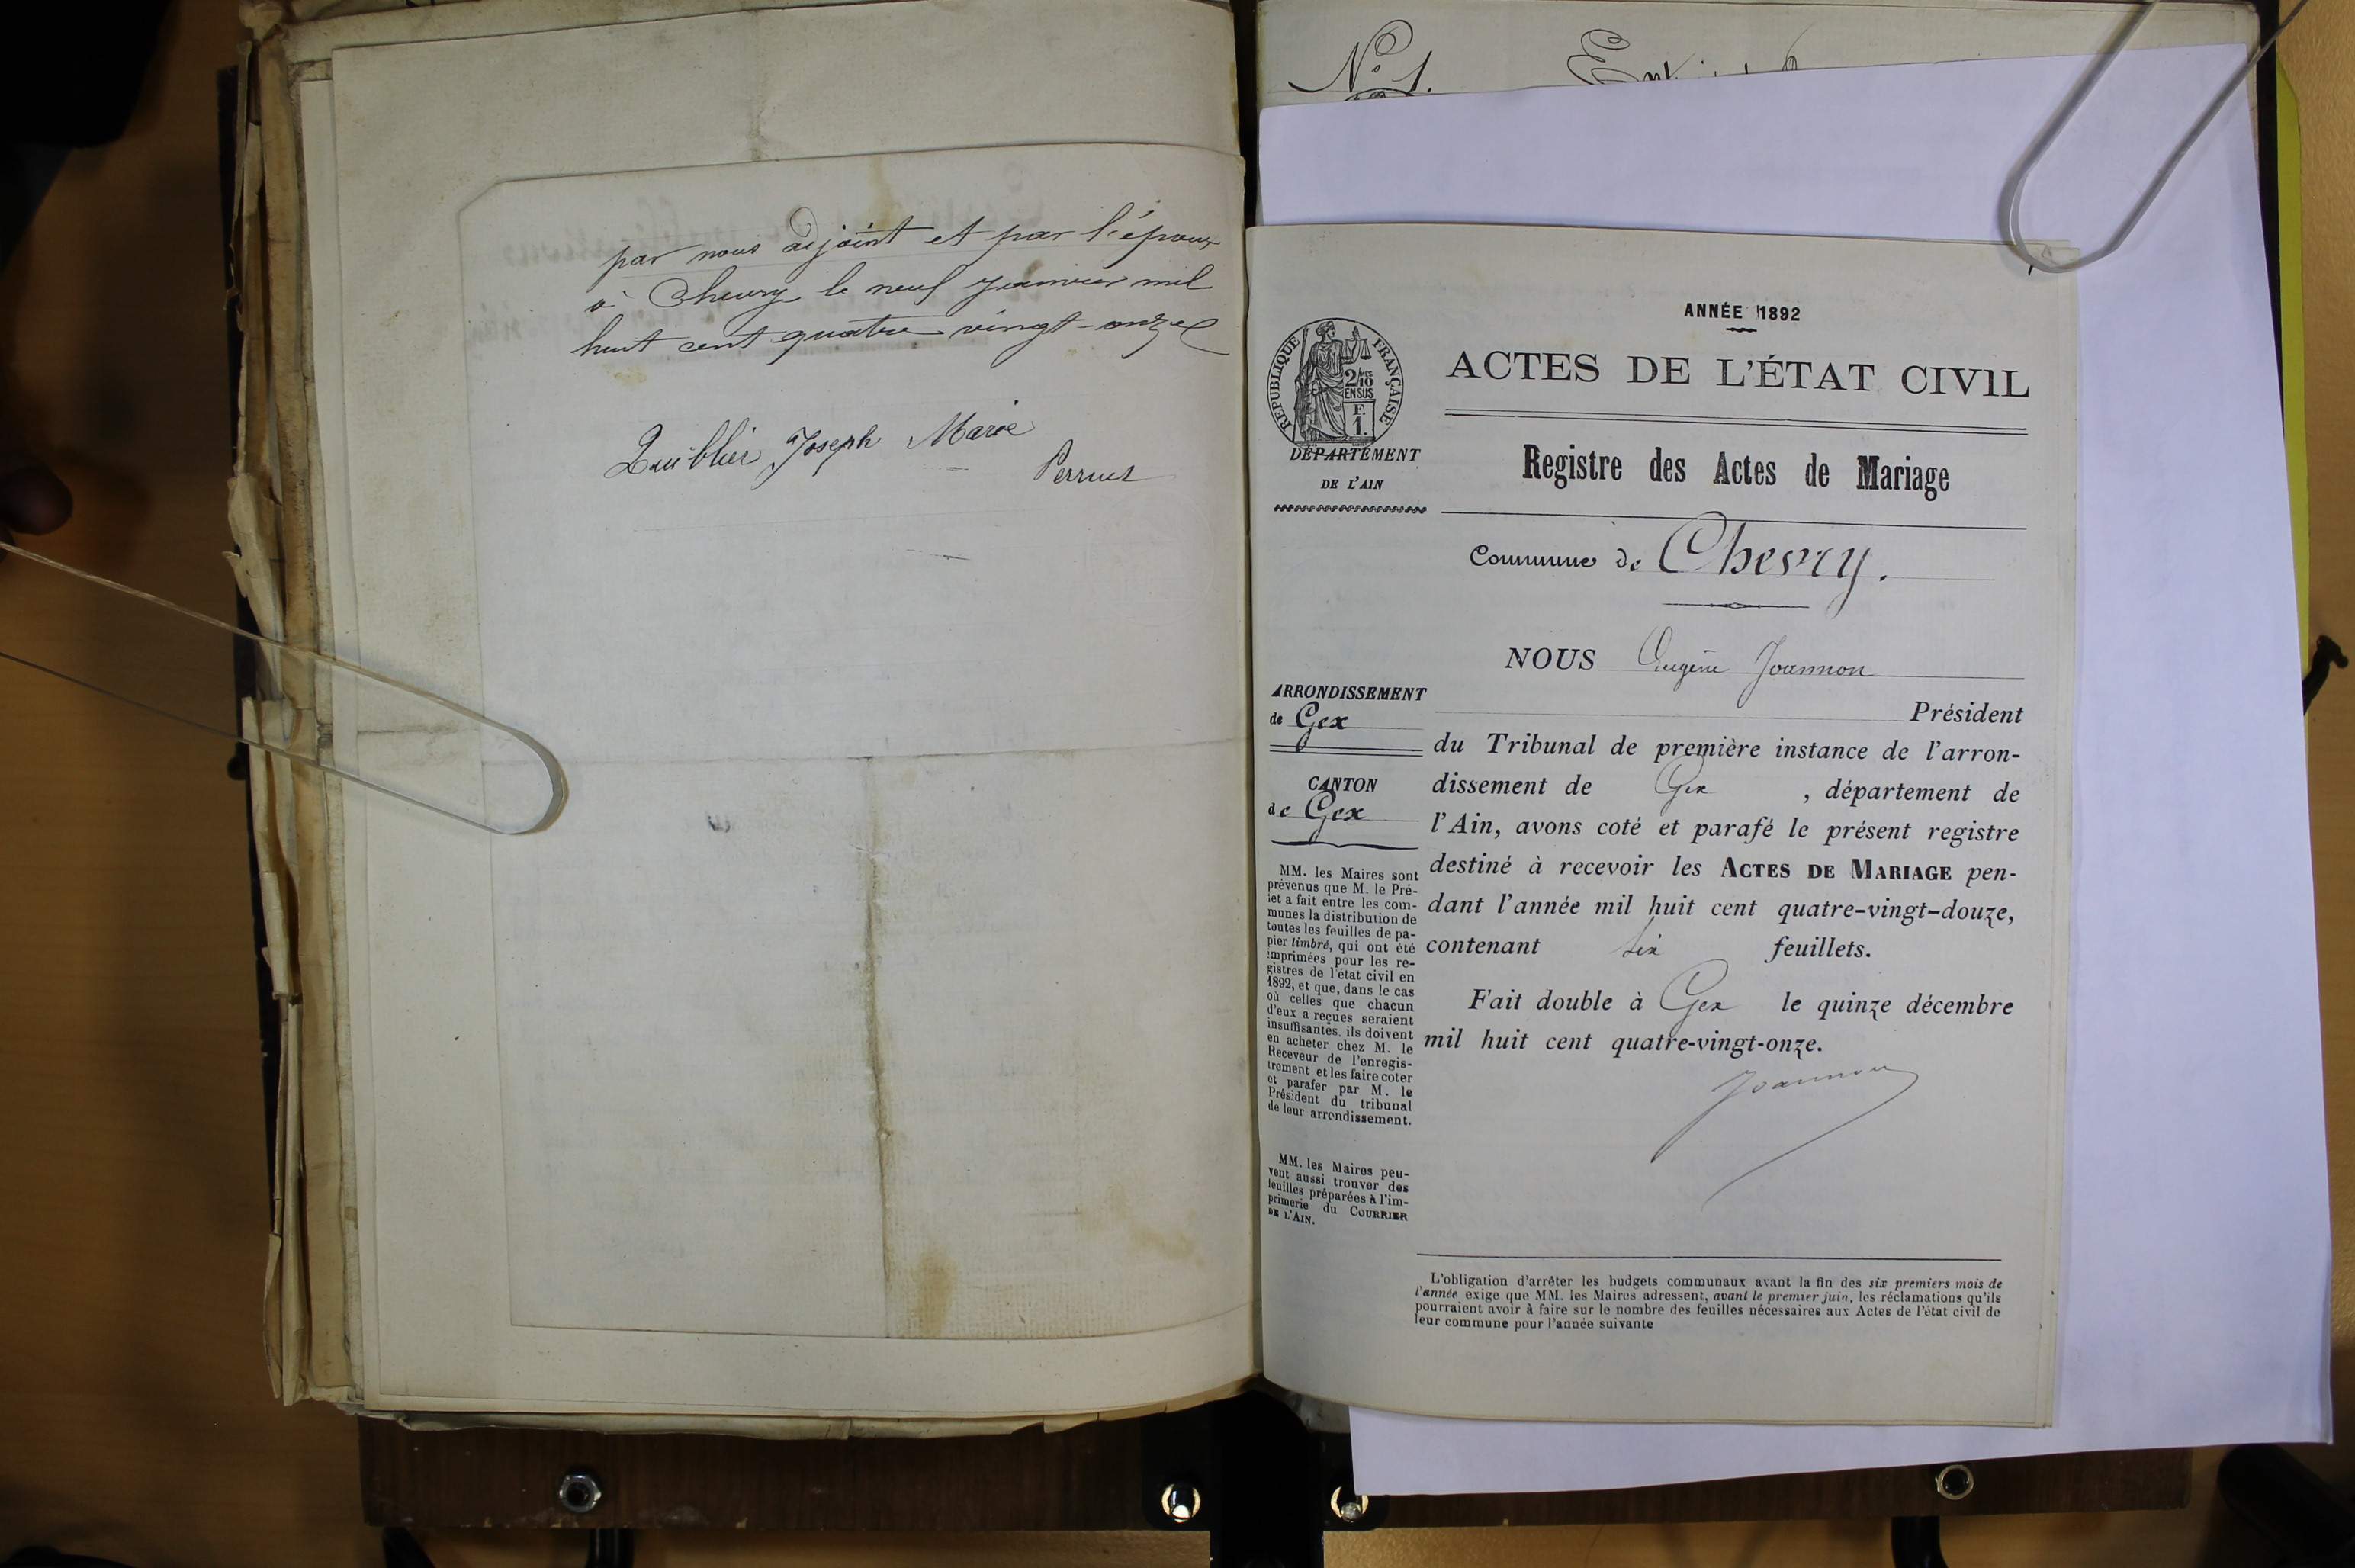 par nous adjoint et par l'époux
à Chevry le neuf janvier mil
huit cent quatre vingt-onze
Quiblier Joseph Marie
Perruet
N° 1.
1
ANNÉE 1892
ACTES DE L'ÉTAT CIVIL
RÉPUBLIQUE FRANÇAISE
2/10
EN SUS
F.
1.
DÉPARTEMENT
DE L'AIN
Registre des Actes de Mariage
Commune de Chevry.
NOUS Eugène Joannon
Président
du Tribunal de première instance de l'arron-
dissement de Gex, département de
l'Ain, avons coté et parafé le présent registre
destiné à recevoir les ACTES DE MARIAGE pen-
dant l'année mil huit cent quatre-vingt-douze,
contenant six feuillets.
Fait double à Gex le quinze décembre
mil huit cent quatre-vingt-onze.
Joannon
ARRONDISSEMENT
de Gex
CANTON
de Gex
MM. les Maires sont
prévenus que M. le Pré-
fet a fait entre les com-
munes la distribution de
toutes les feuilles de pa-
pier timbré, qui ont été
imprimées pour les re-
gistres de l'état civil en
1892, et que, dans le cas
où celles que chacun
d'eux a reçues seraient
insuffisantes, ils doivent
en acheter chez M. le
Receveur de l'enregis-
trement et les faire coter
et parafer par M. le
Président du tribunal
de leur arrondissement.
MM. les Maires peu-
vent aussi trouver des
feuilles préparées à l'im-
primerie du COURRIER
DE L'AIN.
L'obligation d'arrêter les budgets communaux avant la fin des six premiers mois de
l'année exige que MM. les Maires adressent, avant le premier juin, les réclamations qu'ils
pourraient avoir à faire sur le nombre des feuilles nécessaires aux Actes de l'état civil de
leur commune pour l'année suivante